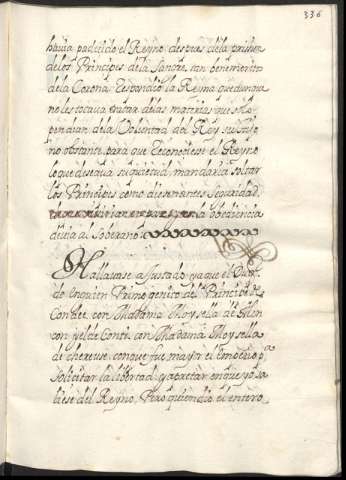 336
havia padecido el Reyno despues de la prision
de los Principes de la Sangre, tan benemeritos
de la Corona. Respondio la Reyna que aunque
no les tocava tratar de las materias que
pendian de la Voluntad del Rey su hijo
no obstante para que reconociese el Reyno
lo que deseava su quietud, mandaria soltar
los Principes como diesen antes seguridad,
la obediencia
devia al Soberano.
Hallavase ajustado ya que el Duq.
de Enguien Primogenito del Principe de
Conde, con Madama Moysella de
con y el de Conti con Madama Moysella
de chereuse, conque fue mayor el empeño p.a
solicitar la libertad, y apretar en que
biese del Reyno, Pero queriendo el entero